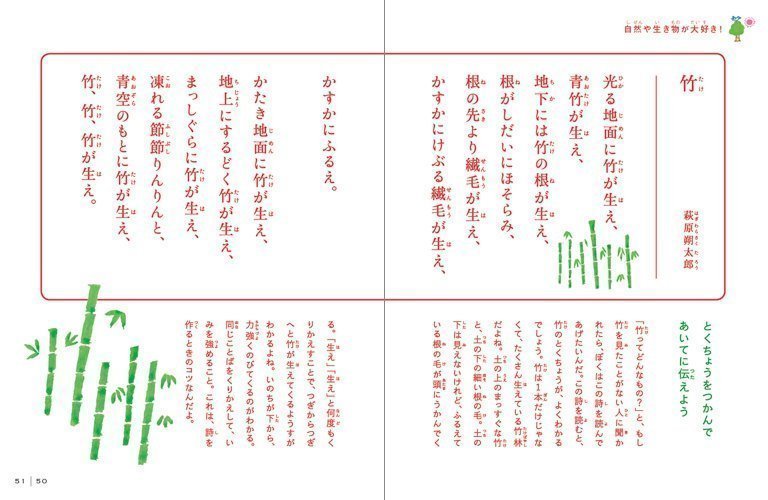 自然や生き物が大好き！
竹
萩原朔太郎
光る地面に竹が生え、
青竹が生え、
地下には竹の根が生え、
根がしだいにほそらみ、
根の先より繊毛が生え、
かすかにけぶる繊毛が生え、
かすかにふるえ。
かたき地面に竹が生え、
地上にするどく竹が生え、
まっしぐらに竹が生え、
凍れる節節りんりんと、
青空のもとに竹が生え、
竹、竹、竹が生え。
とくちょうをつかんで
あいてに伝えよう
「竹ってどんなもの？」と、もし
竹を見たことがない人に聞か
れたら、ぼくはこの詩を読んで
あげたいんだ。この詩を読むと、
竹のとくちょうが、よくわかる
でしょう。竹は1本だけじゃな
くて、たくさん生えている竹林
だよね。土の上のまっすぐな竹
と、土の下の細い根の毛。土の
下は見えないけれど、ふるえて
いる根の毛が頭にうかんでく
る。「生え」「生え」と何度もく
りかえすことで、つぎからつぎ
へと竹が生えてくるようすが
わかるよね。いのちが下から、
力強くのびてくるのがわかる。
同じことばをくりかえして、い
みを強めること。これは、詩を
作るときのコツなんだよ。
51 50